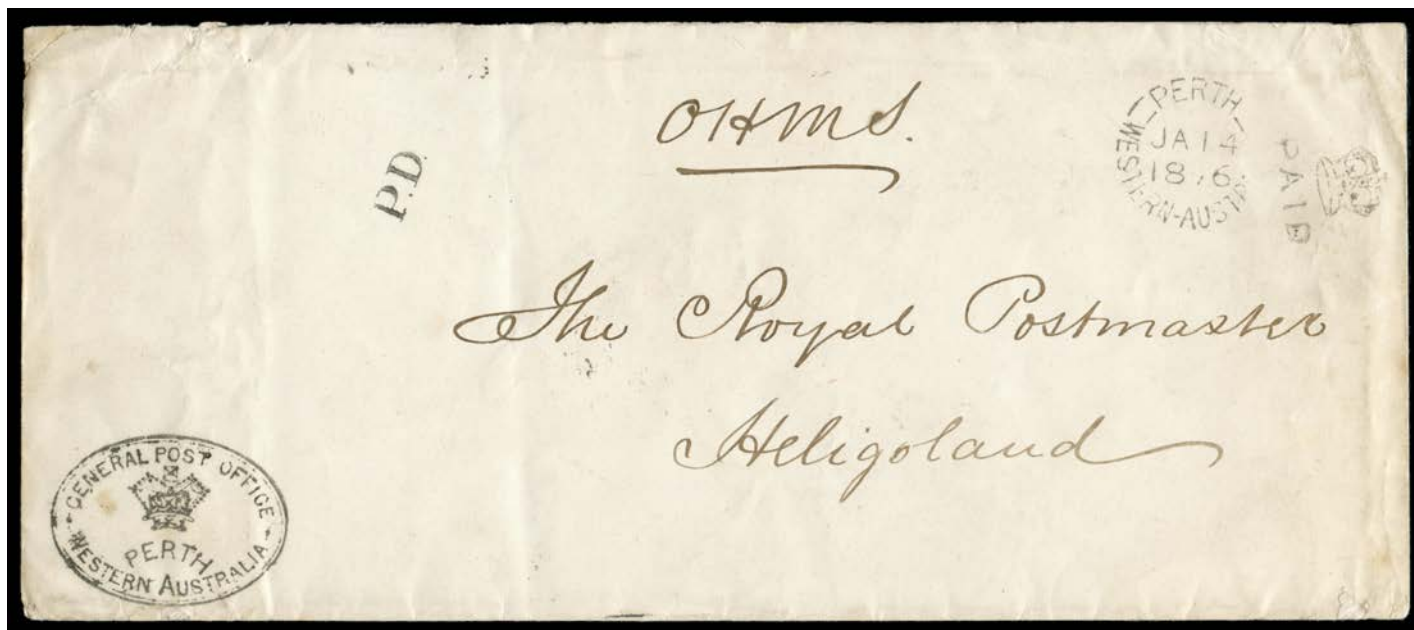 OHMS.
PERTH
JA 14
18 6
WESTERN-AUST
PAID
P.D.
The Royal Postmaster
Heligoland
GENERAL POST OFFICE
PERTH
WESTERN AUSTRALIA